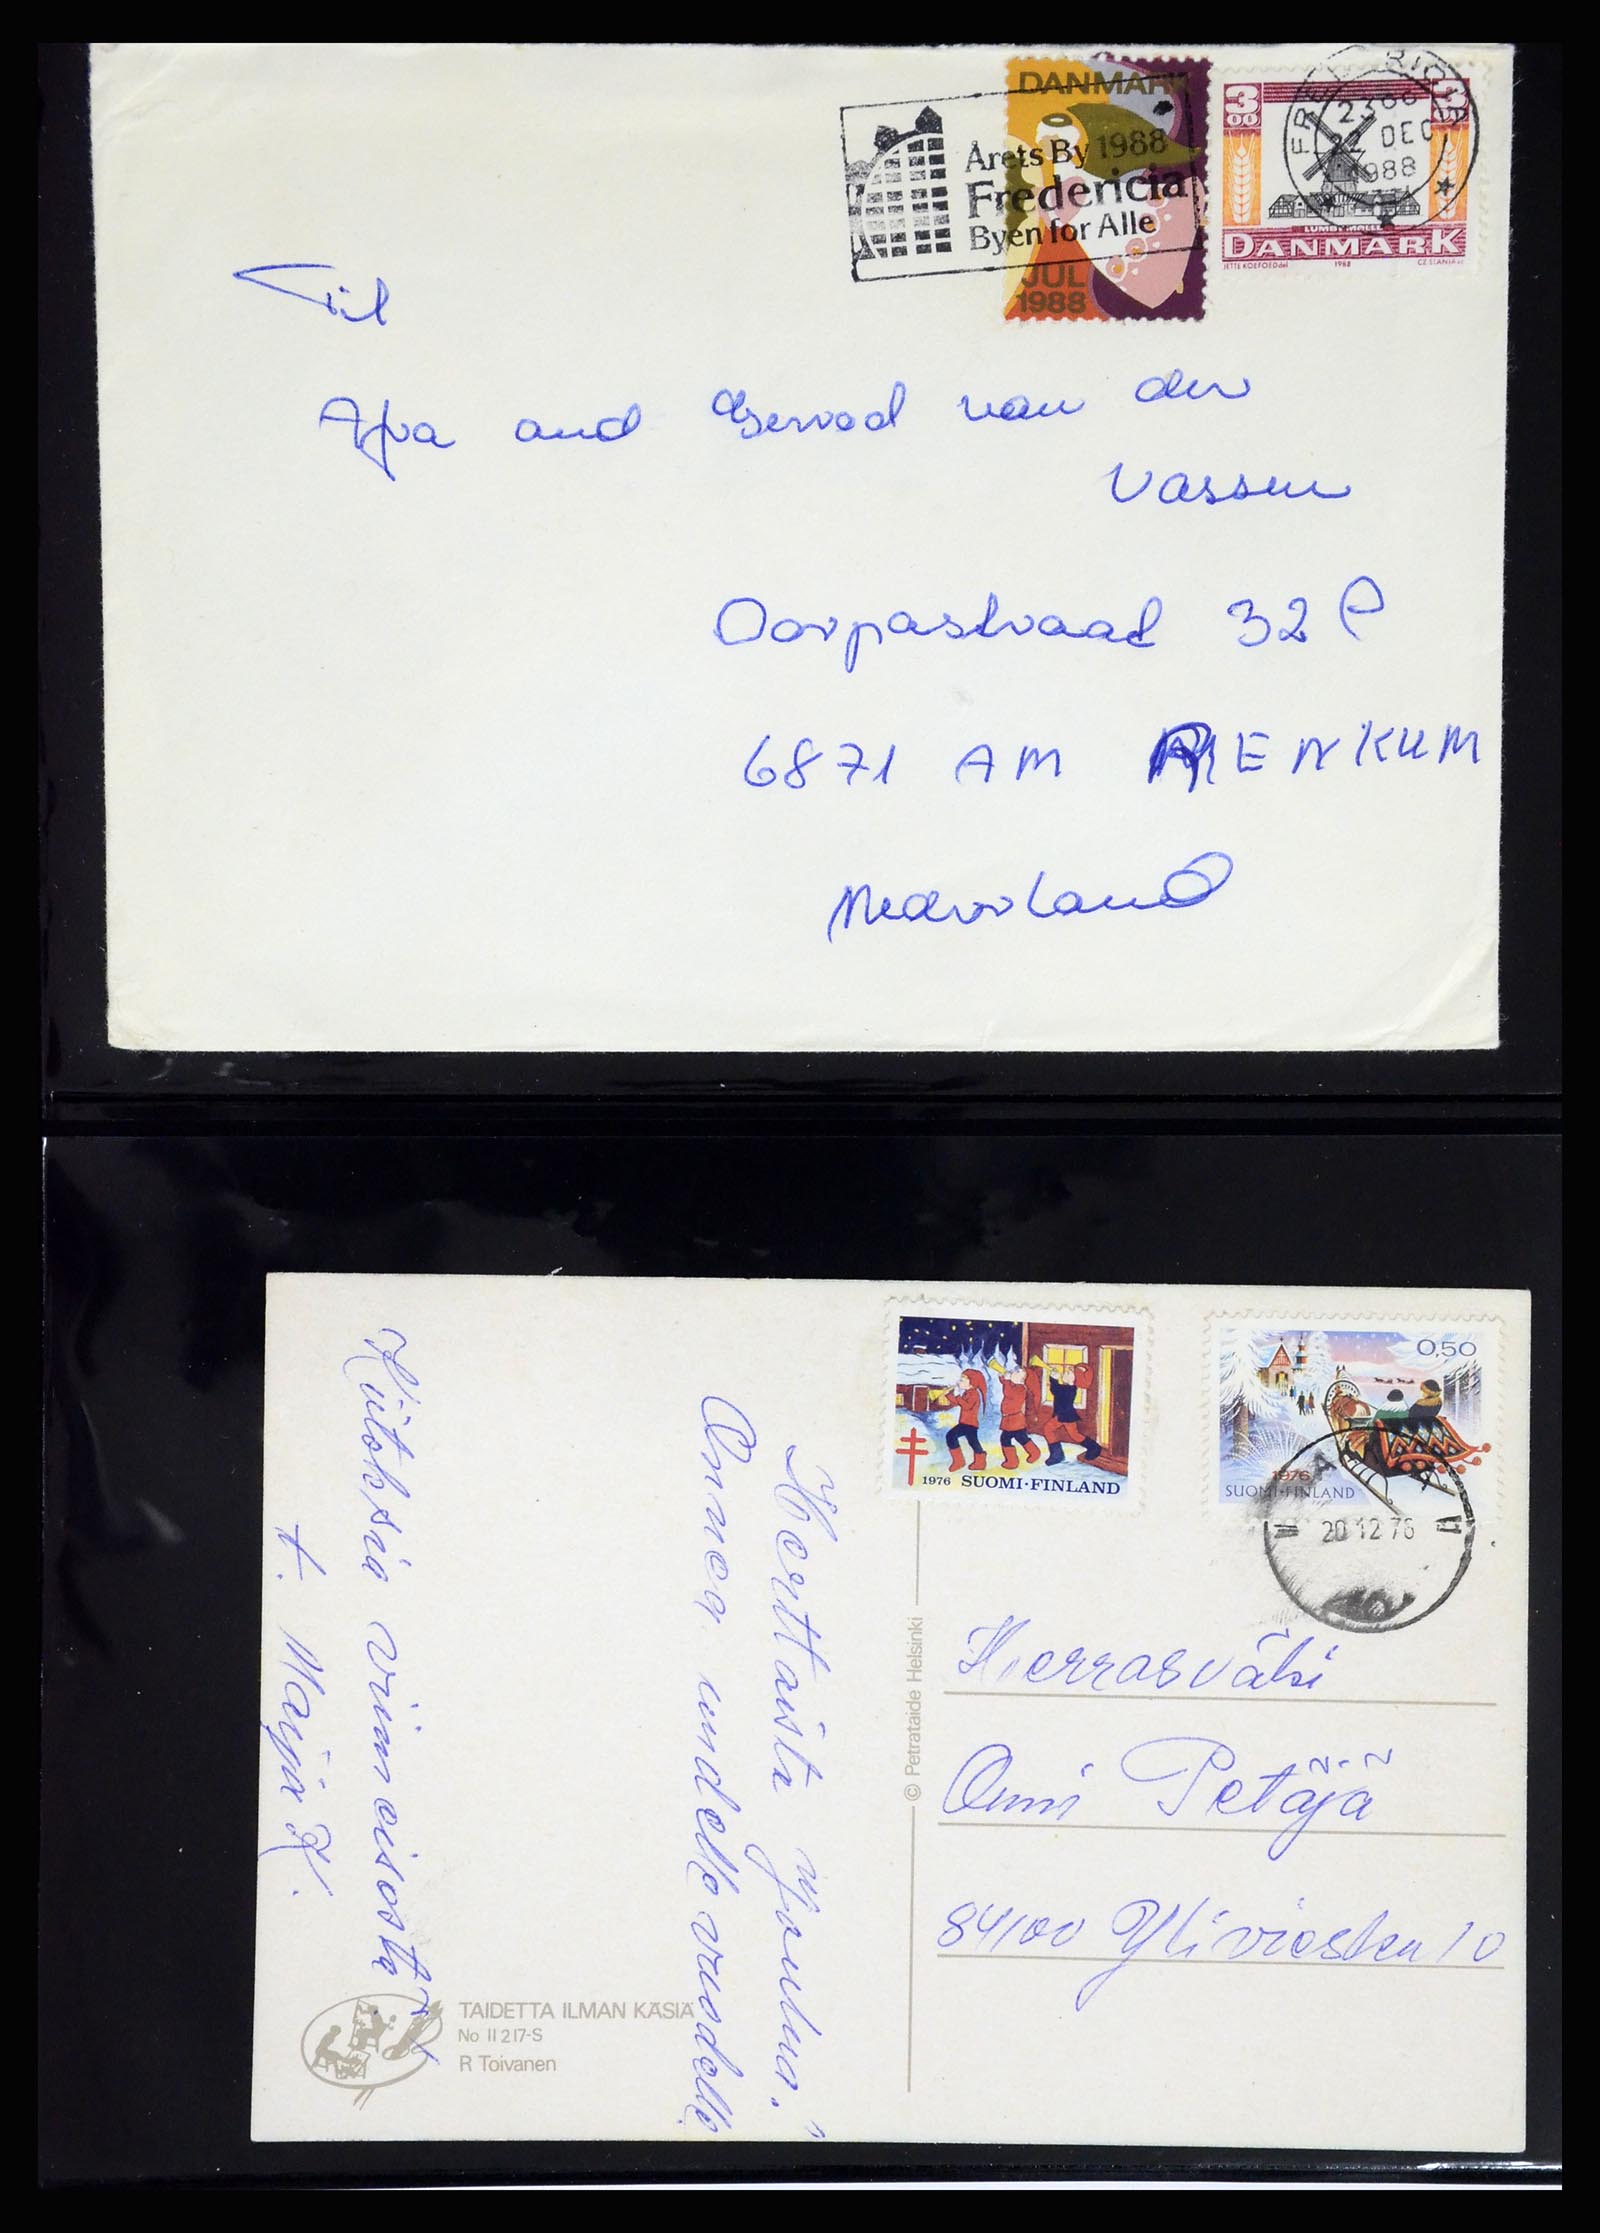 DANMARK
JUL
1988
Årets By 1988
Fredericia
Byen for Alle
3 00
3
FREDERICIA
22 DEC
1988
LUMBY MØLLE
DANMARK
JETTE KOEFOED del
1988
CZ SLANIA sc
Til
and van der
Vassen
Dorpastraad 32 P
6871 AM RENKUM
Nederland
1976 SUOMI·FINLAND
0,50
1976
SUOMI-FINLAND
20 12 76
Herttaista Joulua.
Onnea uudelle vuodelle
Kiitoksia viimeisestä
t. Marja R.
© Petrataide Helsinki
Herrasväki
Onni Petäjä
84100 Ylivieska 10
TAIDETTA ILMAN KÄSIÄ
No 11217-S
R Toivanen